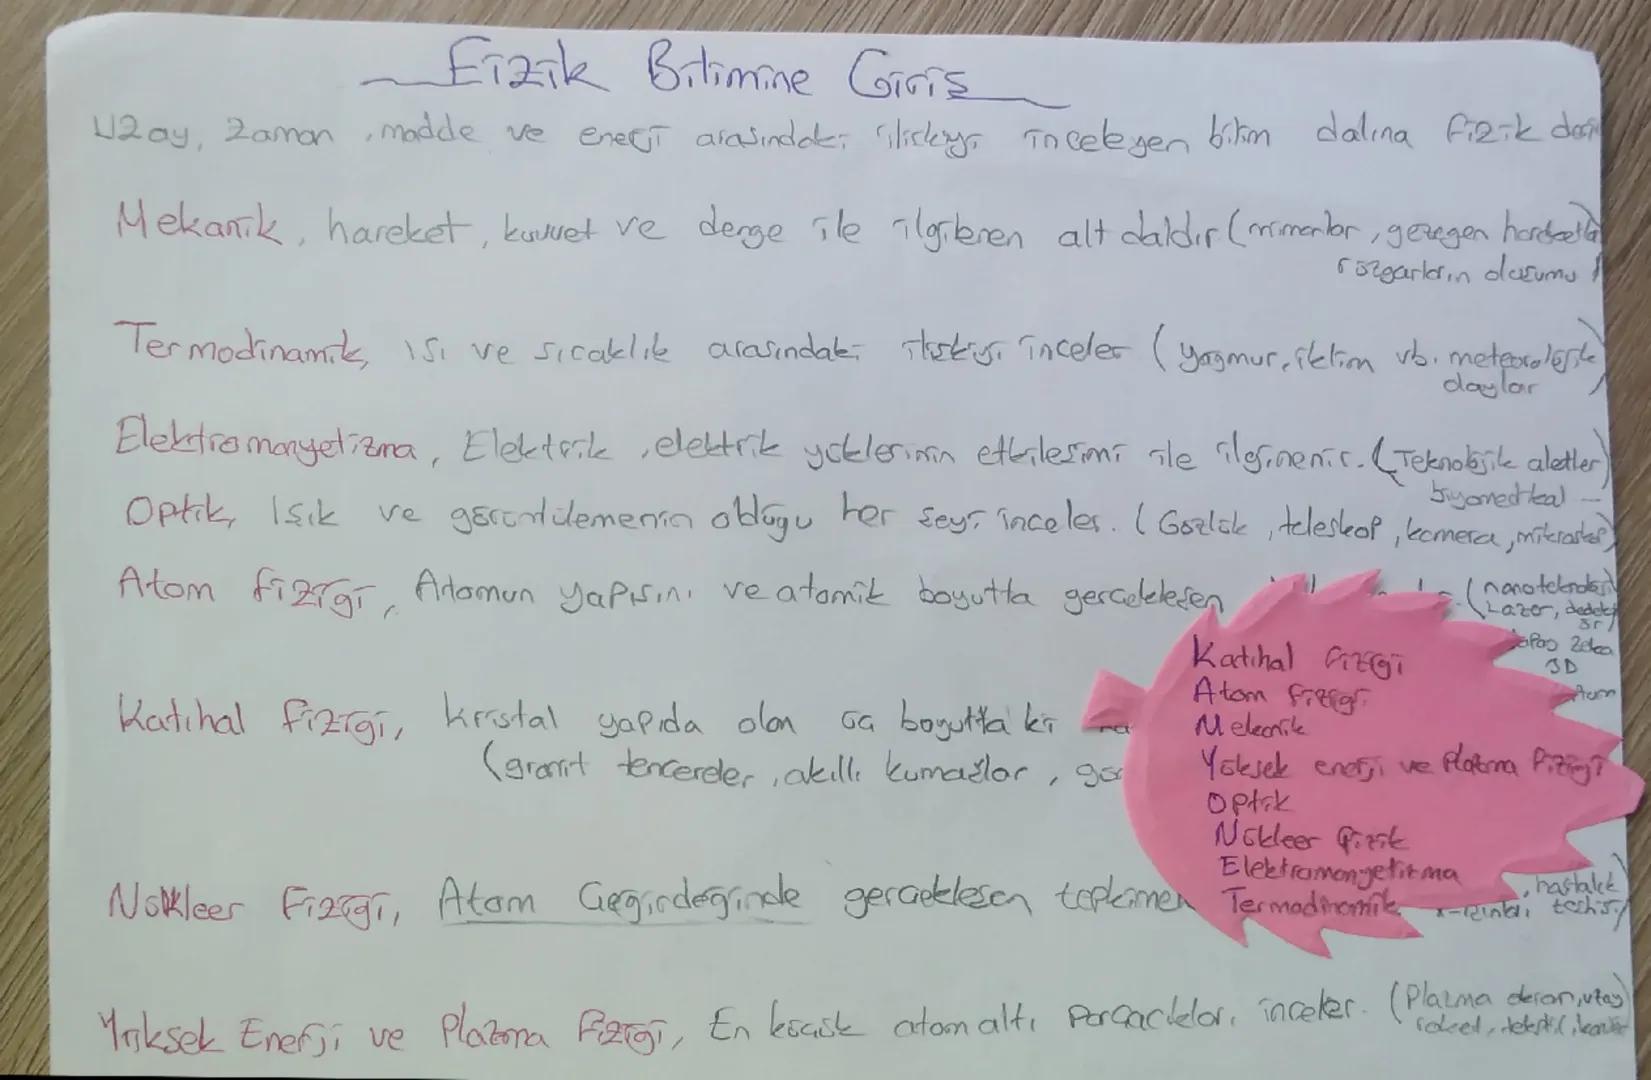 Fizik Bilimine Giriş
Uzay, Zaman, madde ve enerji arasındaki ilişkiyi inceleyen bilim dalına fizik
Mekanik, hareket, kuvvet ve denge ile ilgilenen alt daldır (mimarlar, gezegen
rüzgarların oluşumu)
Termodinamik, ısı ve sıcaklık arasındaki ilişkiyi inceler (yağmur, iklim vb. meteorolojik
olaylar)
Elektromanyetizma, Elektrik, elektrik yüklerinin etkileşimi ile ilgilenir. (Teknolojik aletler)
biyomedikal
Optik, Işık ve görüntülemenin olduğu her şeyi inceler. (Gözlük, teleskop, kamera, mikroskop)
Atom fiziği, Atomun yapısını ve atomik boyutta gerçekleşen (nanoteknoloji
Lazer,
3D
Katıhal fiziği, kristal yapıda olan boyutta ki
(granit tencereler, akıllı kumaşlar,
Katıhal fiziği
Atom fiziği
Mekanik
Yüksek enerji ve Plazma Fiziği
Optik
Nükleer fizik
Elektromanyetizma
Termodinamik
Nükleer Fiziği, Atom Çeğirdeğinde gerçekleşen
hastalık
teşhisi)
Yüksek Enerji ve Plazma Fiziği, En küçük atom altı parçacıkları inceler. (Plazma ekran, uzay